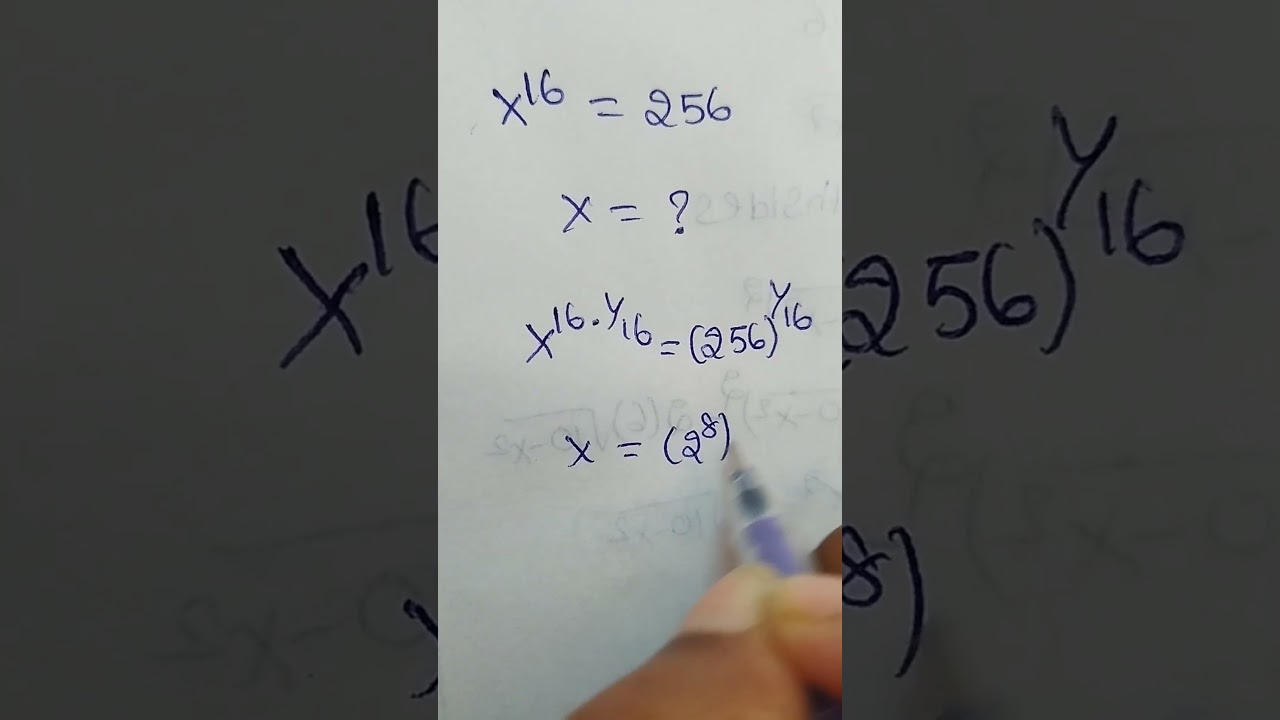 x¹⁶ = 256
x = ?
x¹⁶·¹/¹⁶ = (256)¹/¹⁶
x = (2⁸)